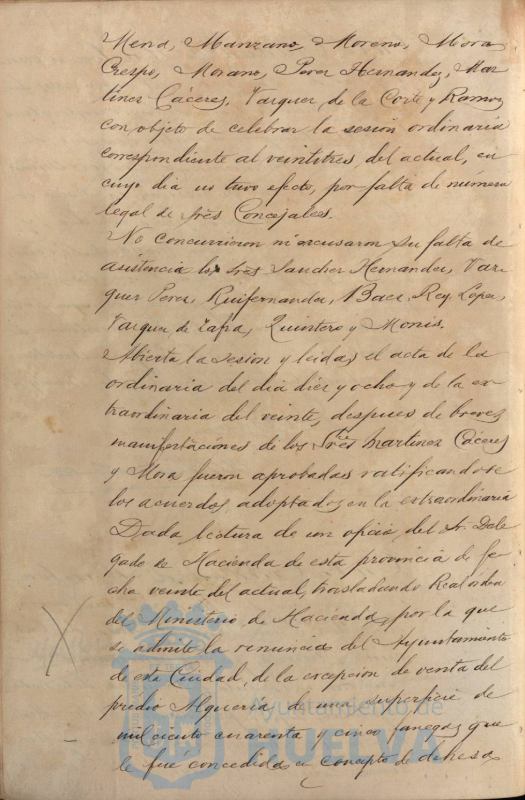 Mena, Manzano, Moreno, Mora
Crespo, Morano, Perez Hernandez, Mar-
tinez Cáceres, Vazquez de la Corte y Ramos
con objeto de celebrar la sesion ordinaria
correspondiente al veintitres del actual, en
cuyo dia no tuvo efecto, por falta de número
legal de Sres Concejales.
No concurrieron ni escusaron su falta de
asistencia los Sres Sanchez Hernandez, Vaz-
quez Perez, Ruifernandez, Baez, Rey, Lopez,
Vazquez de Zafra, Quintero y Monis.
Abierta la sesion y leidas el acta de la
ordinaria del dia diez y ocho y de la ex-
traordinaria del veinte, despues de breves
manifestaciones de los Sres Martinez Cáceres
y Mora fueron aprobadas ratificandose
los acuerdos adoptados en la extraordinaria
Dada lectura de un oficio del Sr. Dele-
gado de Hacienda de esta provincia de fe-
cha veinte del actual, trasladando Real orden
del Ministerio de Hacienda, por la que
se admite la renuncia del Ayuntamiento
de esta Ciudad, de la escepcion de venta del
predio Alqueria, de una superficie de
mil ciento cuarenta y cinco fanegas que
le fué concedida en concepto de dehesa
Ayuntamiento de
HUELVA